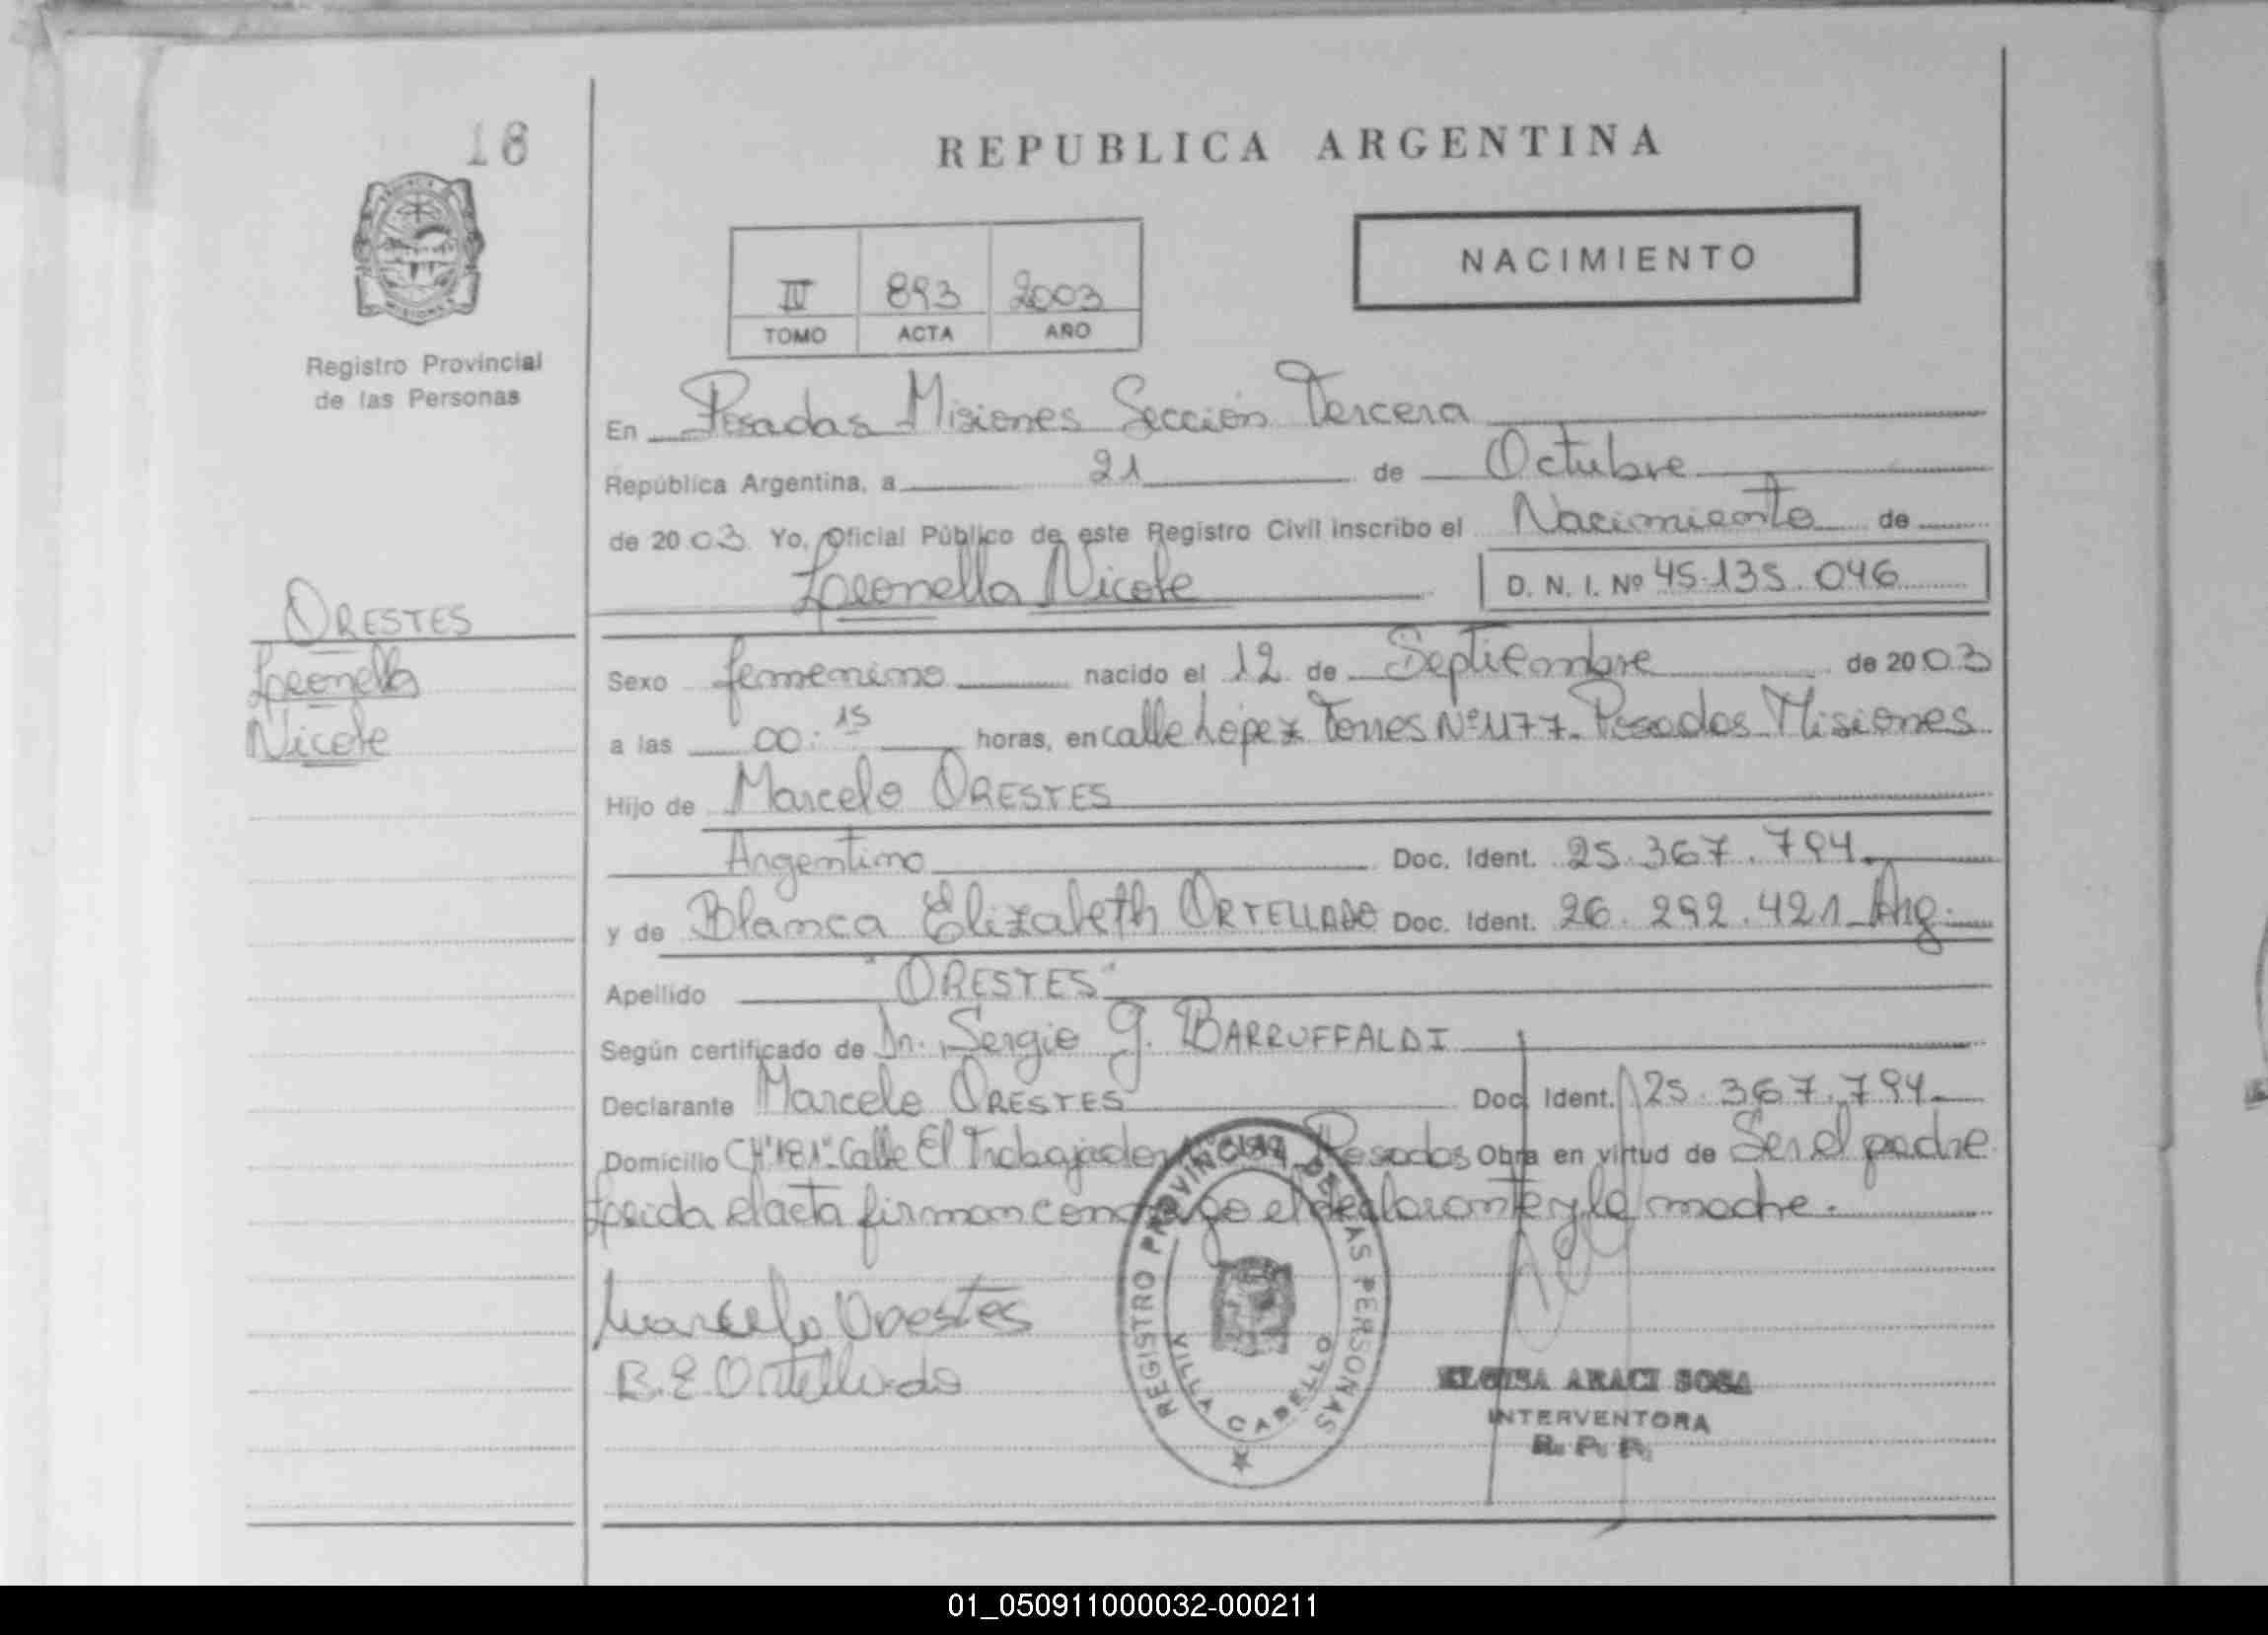 18
REPUBLICA ARGENTINA
NACIMIENTO
IV 893 2003
TOMO ACTA AÑO
Registro Provincial
de las Personas
En Posadas Misiones Sección Tercera
República Argentina, a 21 de Octubre
de 2003. Yo, Oficial Público de este Registro Civil inscribo el Nacimiento de
Leonella Nicole D. N. I. Nº 45.135.046
ORESTES
Leonella
Nicole
Sexo femenino nacido el 12 de Septiembre de 2003
a las 00:15 horas, en calle López Torres Nº 1177 - Posadas Misiones
Hijo de Marcelo ORESTES
Argentino Doc. Ident. 25.367.794
y de Blanca Elizabeth ORTELLADO Doc. Ident. 26.292.421 Arg.
Apellido "ORESTES"
Según certificado de Dr. Sergio G. BARRUFFALDI
Declarante Marcelo ORESTES Doc. Ident. 25.367.794
Domicilio CH"181" Calle El Trabajador Posadas Obra en virtud de Ser el padre
Leida el acta firman conmigo el declarante y la madre.
Marcelo Orestes
B.E. Ortellado
REGISTRO PROVINCIAL DE LAS PERSONAS
VILLA CABELLO
ELOISA ARACI SOSA
INTERVENTORA
R. P. P.
01_050911000032-000211